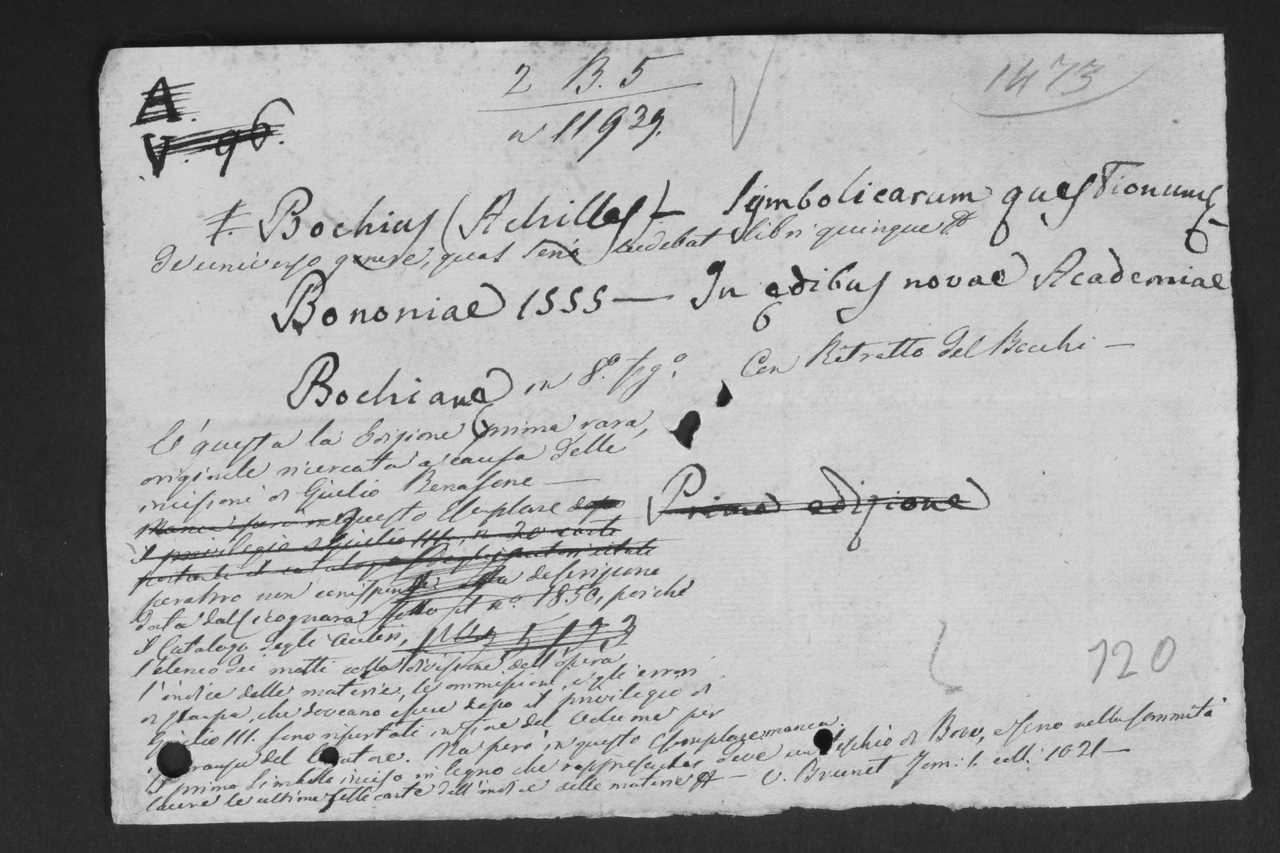 2 B. 5
1473
A.
n 11939.
V. 96.
Bochius (Achilles) — Symbolicarum questionum,
de universo genere, quas serio ludebat libri quinque
Bononiae 1555 — In edibus novae Academiae
Bochiane in 8.º fig.º Con Ritratto del Bocchi —
E' questa la Edizione prima rara,
originale ricercata a causa delle
incisioni di Giulio Bonasone —
questo Esemplare dopo
il privilegio di Giulio III. 20 carte
Prima edizione
peraltro non alla descrizione
data dal Cicognara sotto il nº. 1850, perché
il Catalogo degli Autori,
l'elenco dei motti colla divisione dell'opera
l'indice delle materie, le ommissioni, e gli errori
di stampa, che doveano essere dopo il privilegio di
Giulio III. sono riportati in fine del volume per
del Ma però in questo Esemplare manca
il primo Simbolo inciso in legno che un Teschio di Bove, e sono nella sommità
le ultime carte dell'indice delle materie — V. Brunet Tom: 1. coll: 1021 —
120